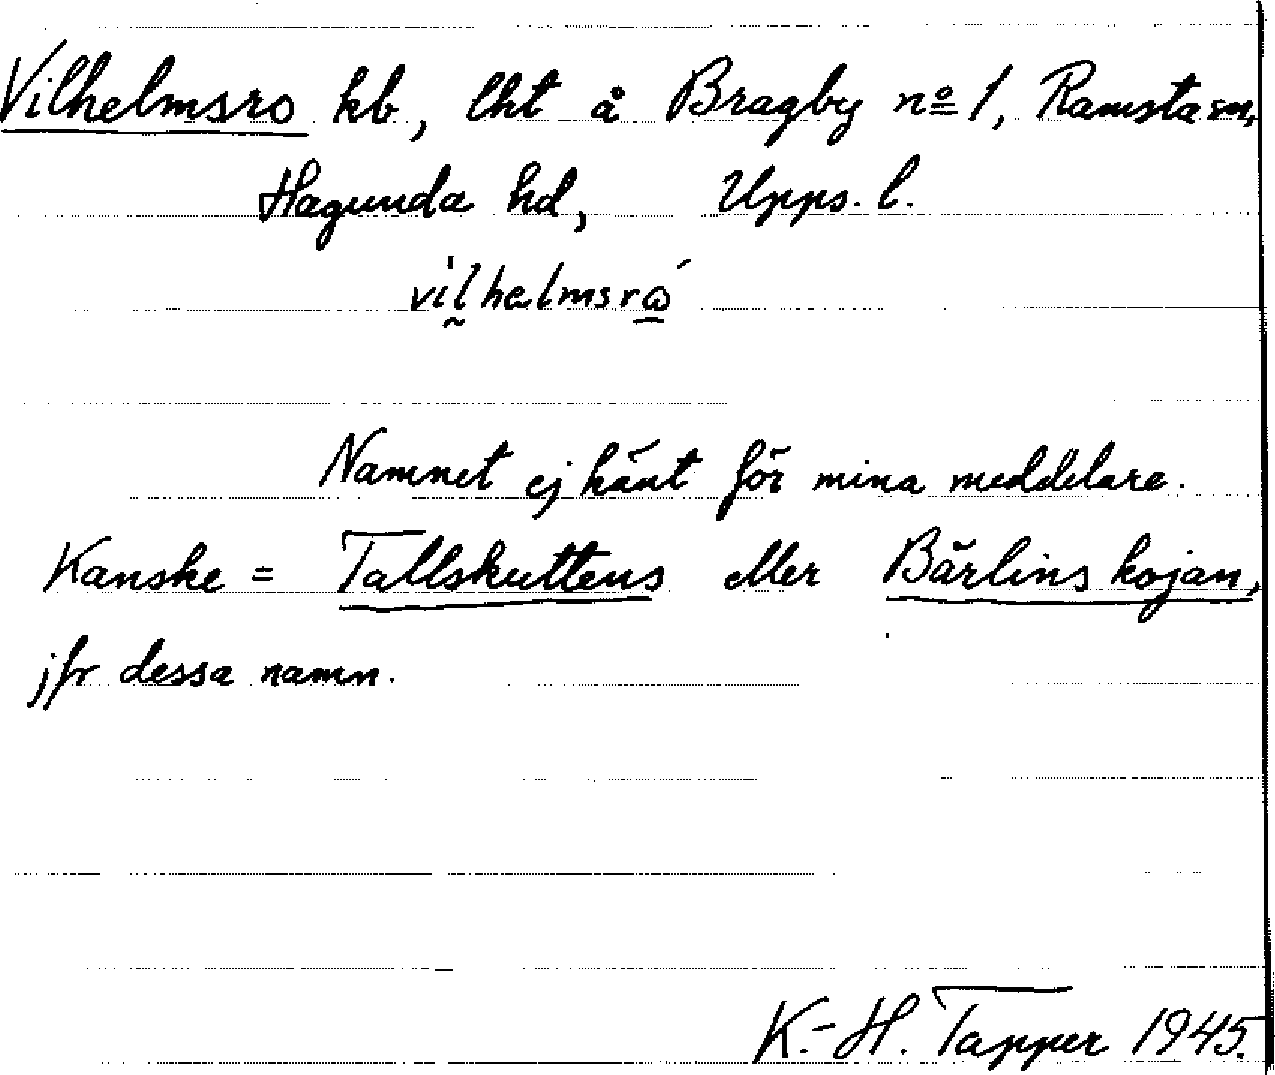 Vilhelmsro kb, lht å Bragby nº 1, Ramsta sn,
Hagunda hd, Upps. l.
vil̰helmsrώ̲
Namnet ej känt för mina meddelare.
Kanske = Tallskuttens eller Bärlins kojan,
jfr dessa namn.
K.-H. Tapper 1945.